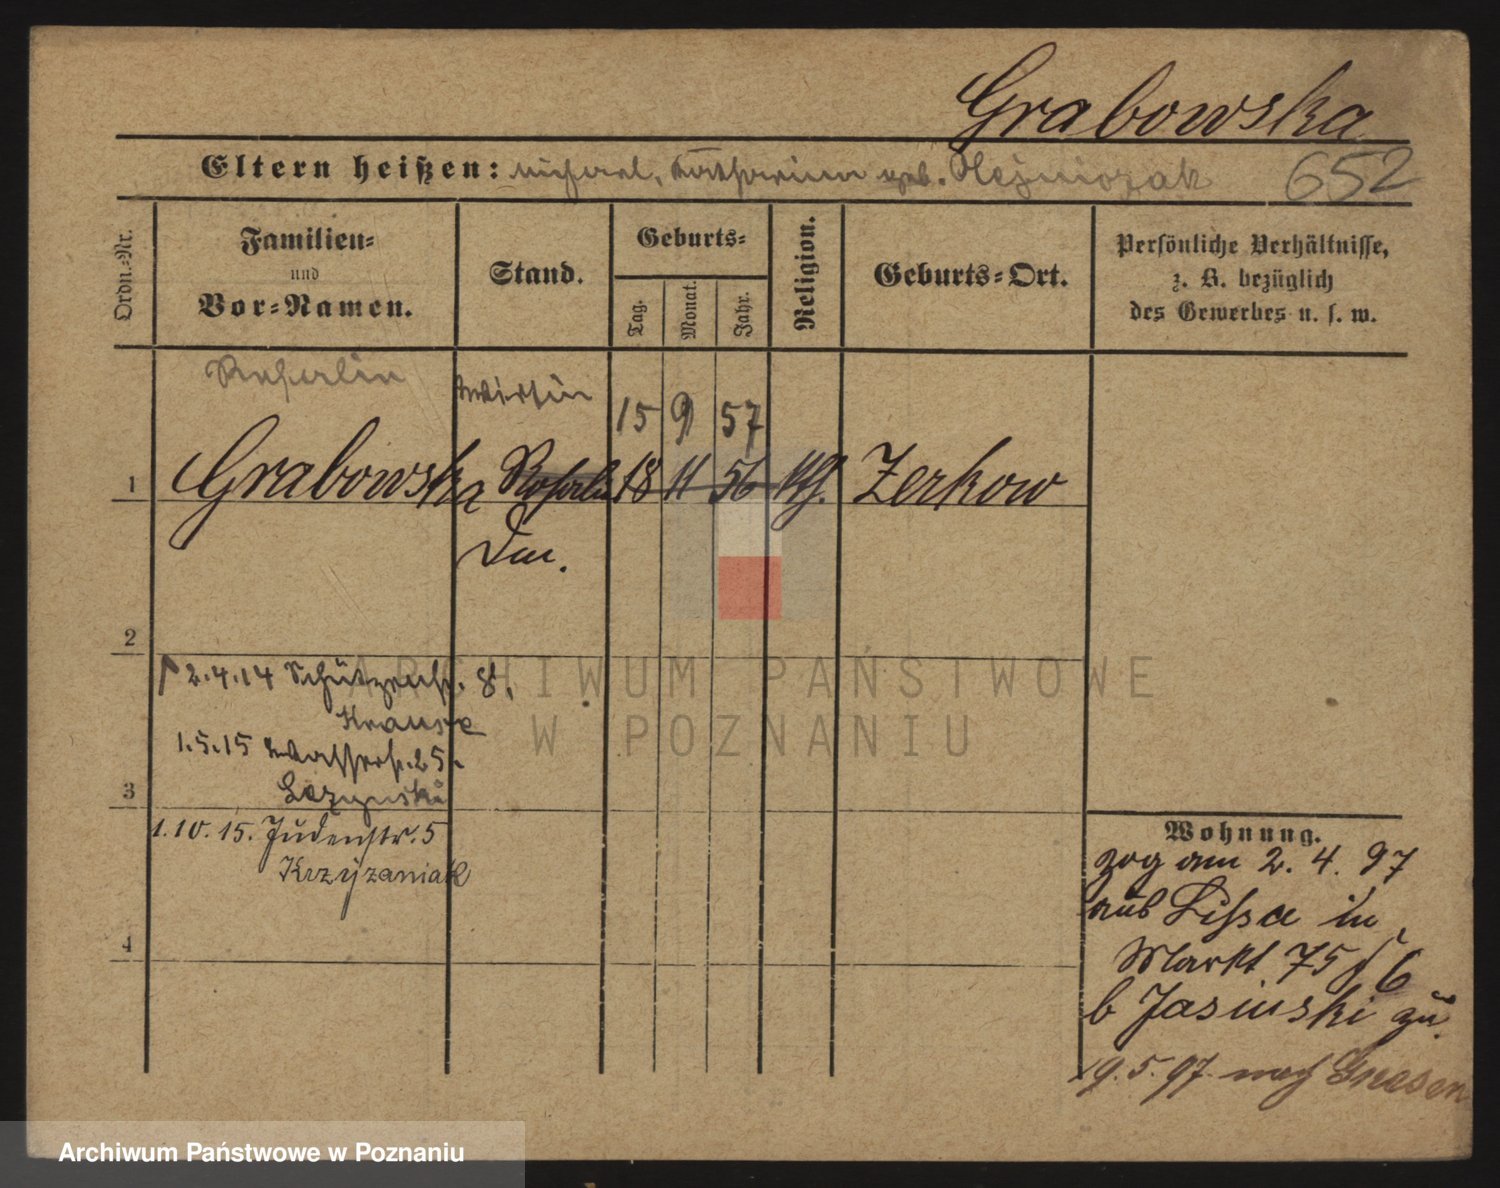 Grabowska
Eltern heißen: Michael, Katharina geb. Olejniczak
652
Ordn.-Nr.
Familien-
und
Vor-Namen.
Stand.
Geburts-
Tag.
Monat.
Jahr.
Religion.
Geburts-Ort.
Persönliche Verhältnisse,
z. B. bezüglich
des Gewerbes u. s. w.
Rosalie
Wirtin
15 9 57
1 Grabowska Rosalie 18 11 56 kth. Zerkow
2
2.4.14 Schützenstr. 8,
Krause
1.5.15 Wasserstr. 25.
3
1.10.15. Judenstr. 5
Krzyzaniak
4
Wohnung.
zog am 2. 4. 97
aus Lissa in
Markt 75
b Jasinski zu.
19.5.97 nach Gnesen
ARCHIWUM PAŃSTWOWE
W POZNANIU
Archiwum Państwowe w Poznaniu